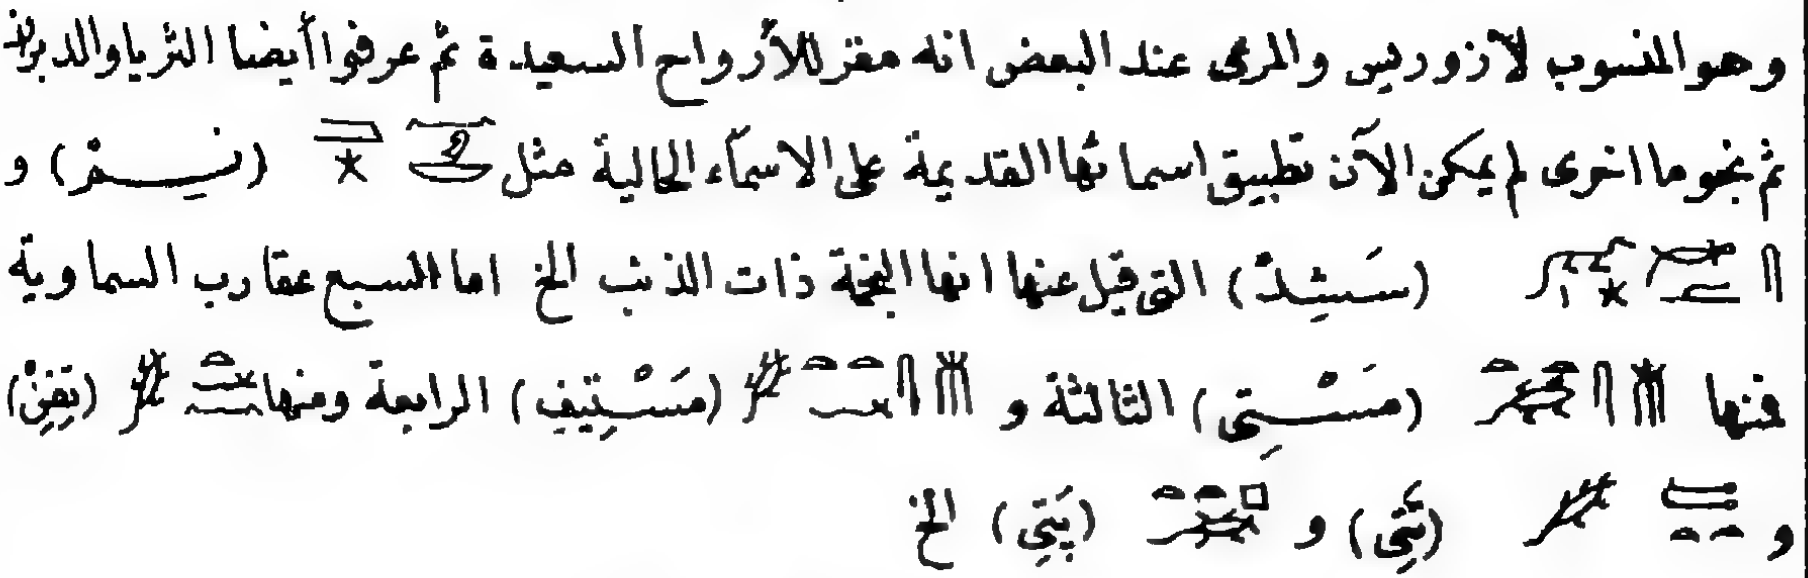 وهو المنسوب لآزوريس والمرعى عند البعض انه مقر للأرواح السعيدة ثم عرفوا أيضا الثريا والدبران
ثم نجوما اخرى لم يمكن الآن تطبيق اسمائها القديمة على الاسمآء الحالية مثل (نِسـمْ) و
(سَـشِـدْ) التى قيل عنها انها النجمة ذات الذنب الخ اما السبع عقارب السماوية
فمنها (مَسْـتِى) الثالثة و (مَسْـتِيفِ) الرابعة ومنها (تِفِنْ)
و (ثَتِى) و (پَتِى) الخ